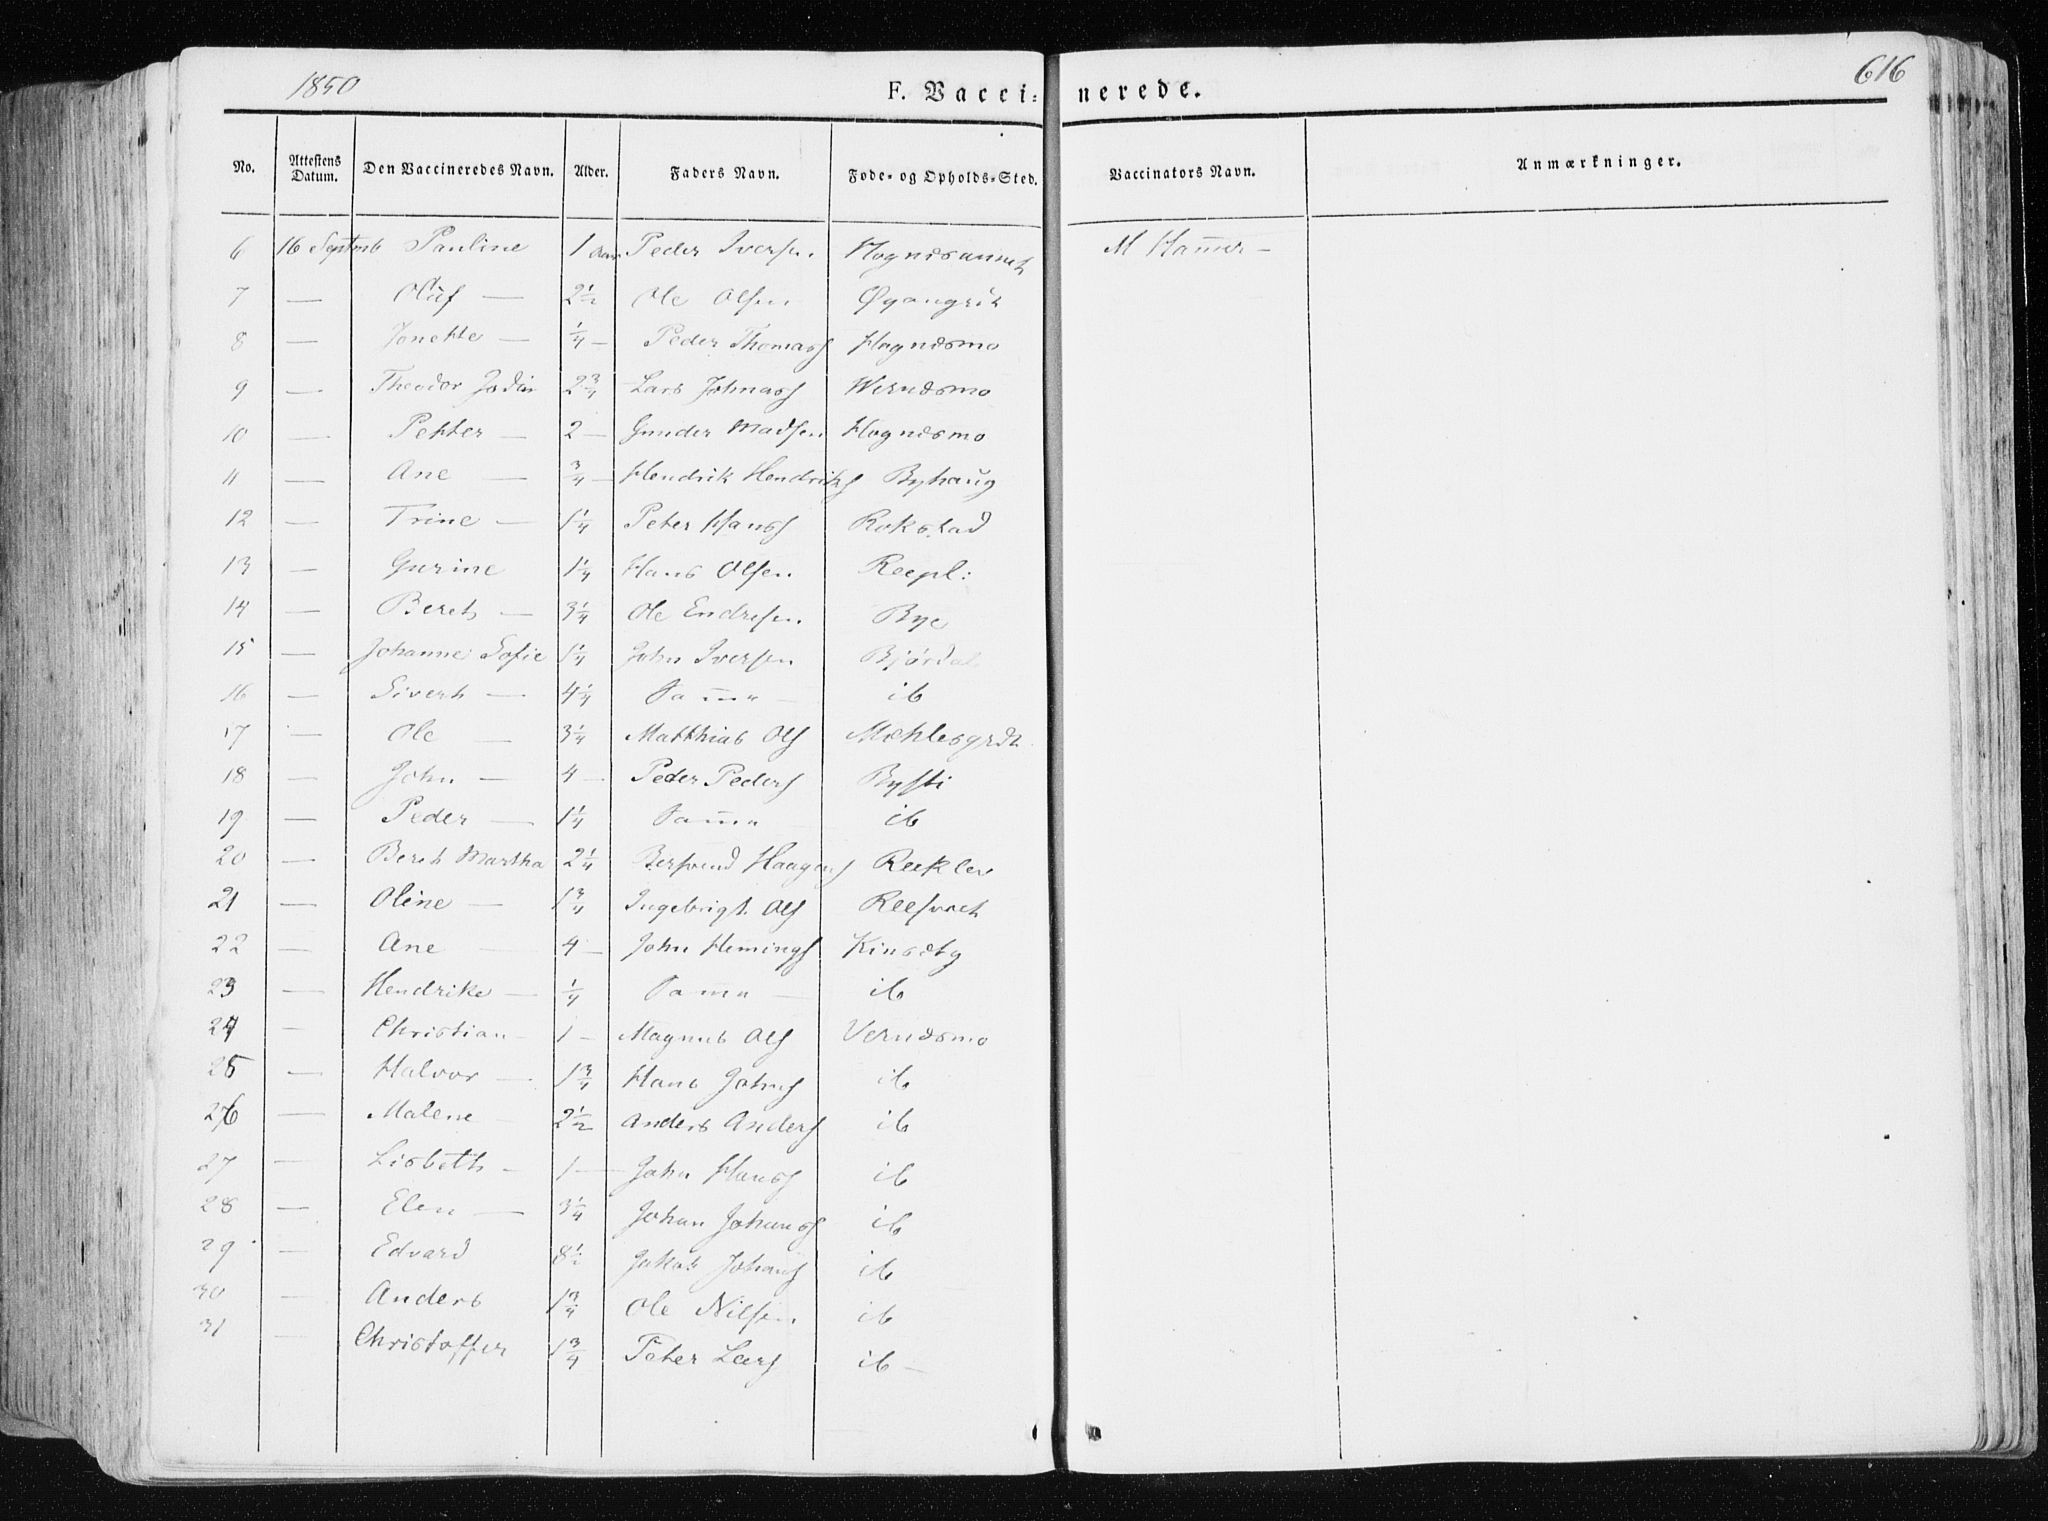 1850 F. Vaccinerede. 616
No. Attestens Datum. Den Vaccineredes Navn. Alder. Faders Navn. Føde- og Opholds-Sted. Vaccinators Navn. Anmærkninger.
6 16 Septmb Pauline 1 Aar Peder Iversen M Hamer -
7 — Oluf — 2½ Ole Olsen
8 — Jonette — ¼ — Peder Thomass Hognesmo
9 — Theodor 2¾ Lars Johnass Wernesmo
10 — Petter — 2 — Gunder Madsen Hognesmo
11 — Ane — ¾ — Hendrik Hendriks Byhaug
12 — Trine — 1¼ Peter Hans Rokstad
13 — Gurine 1¼ Hans Olsen Reepl:
14 — Beret — 3¼ Ole Endresen Bye
15 — Johanne Sofie 1¼ John Iversen Bjørdal
16 — Sivert — 4¼ Samme — ib
17 — Ole — 3¼ Matthias Ols Mæhlesgrdt
18 — John — 4 — Peder Peders Bysti
19 — Peder — 1¼ Samme ib
20 — Beret Martha 2¼ Haagens
21 — Oline — 1¾ Ingebrigt Ols
22 — Ane — 4 — John Hemings
23 — Hendrike — ¼ Samme — ib
24 — Christian — 1 — Magnus Ols Vernesmo
25 — Halvor — 1¾ Hans Johns ib
26 — Malene — 2½ Anders Anders ib
27 — Lisbeth — 1 — John Hans ib
28 — Elen — 3¼ Johan Johans ib
29 — Edvard 8½ Jakob Johans ib
30 — Anders 1¾ Ole Nilsen ib
31 — Christoffer 1¾ Peter Lars ib —